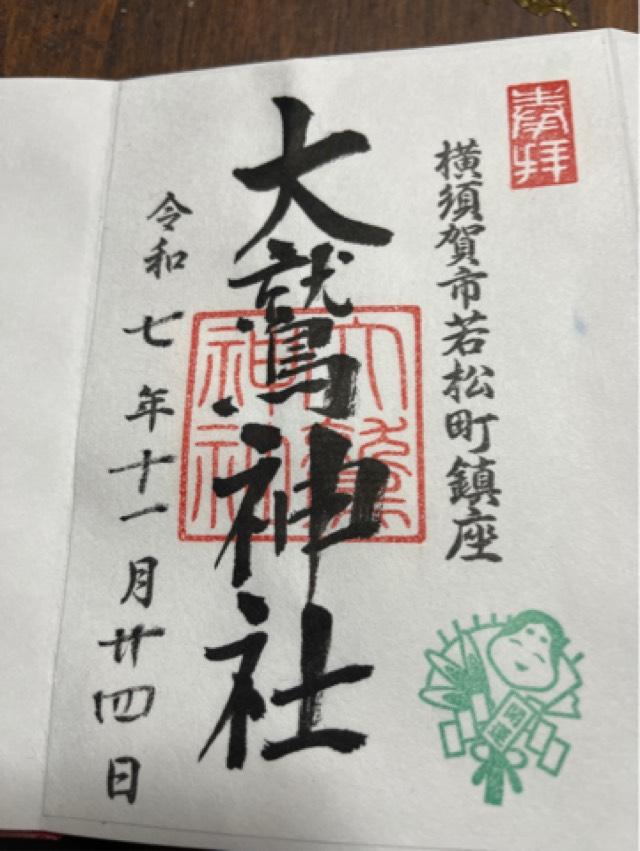 奉拝
横須賀市若松町鎮座
大鷲神社
大鷲神社
令和七年十一月廿四日